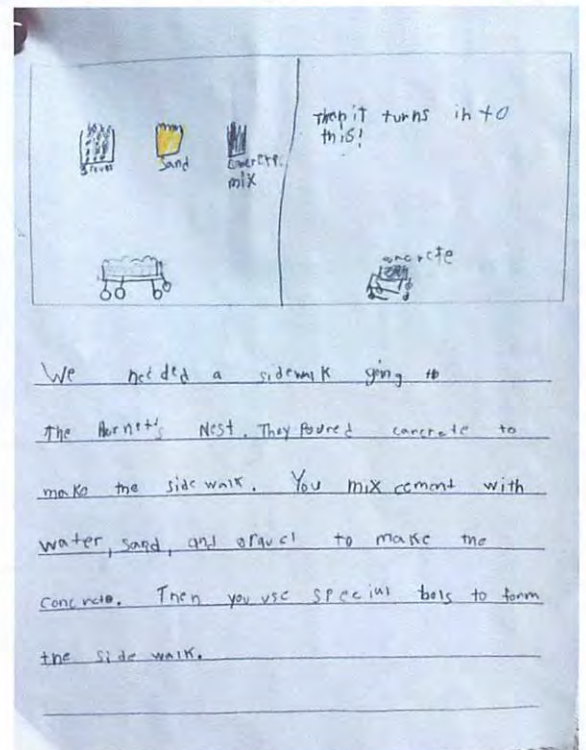 Then it turns in to
this!
Sand
mix
We needed a sidewalk going to
The Hornets Nest. They Poured concrete to
make the side walk. You mix cement with
water, sand, and gravel to make the
concrete. Then you use special tools to form
the side walk.